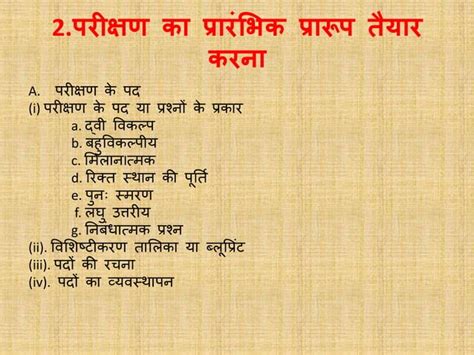 2.परीक्षण का प्रारंभिक प्रारूप तैयार
करना
A. परीक्षण के पद
(i) परीक्षण के पद या प्रश्नों के प्रकार
a. द्वी विकल्प
b. बहुविकल्पीय
c. मिलानात्मक
d. रिक्त स्थान की पूर्ति
e. पुनः स्मरण
f. लघु उत्तरीय
g. निबंधात्मक प्रश्न
(ii). विशिष्टीकरण तालिका या ब्लूप्रिंट
(iii). पदों की रचना
(iv). पदों का व्यवस्थापन